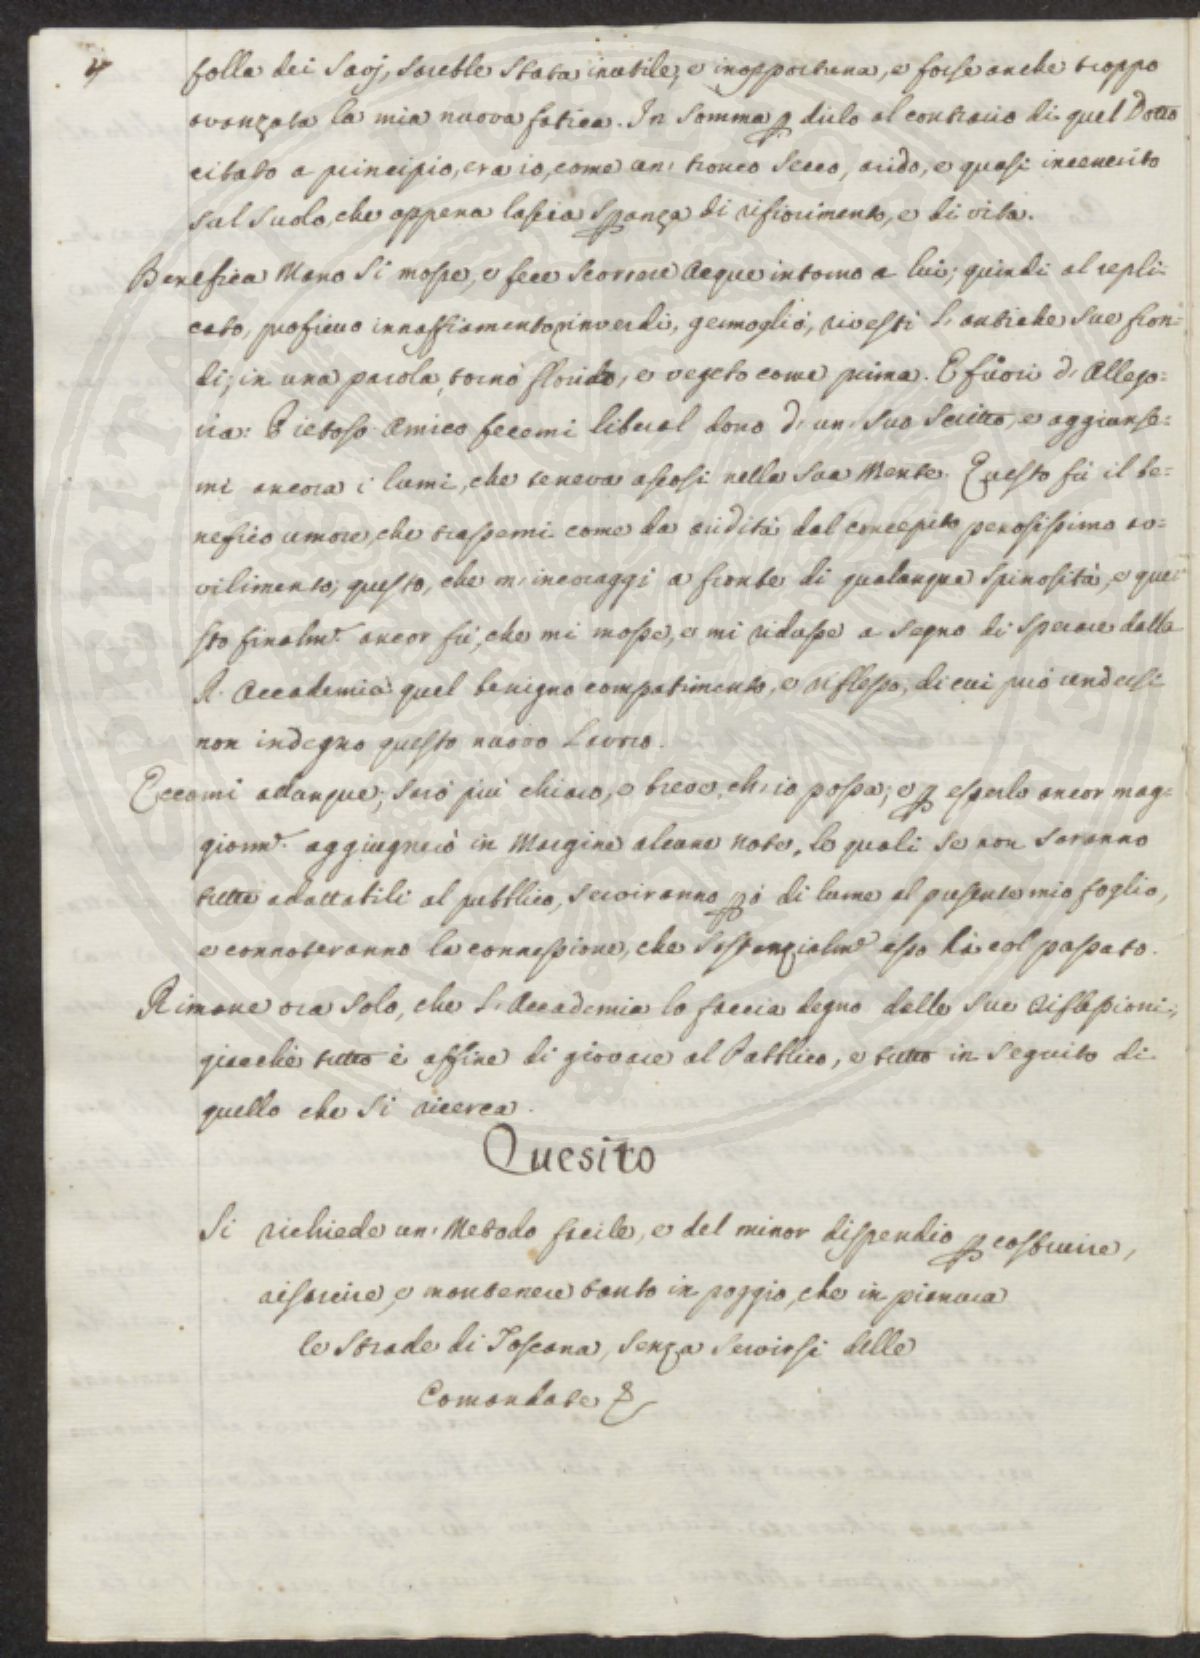 4
folla dei Savj, sarebbe stata inutile, e inopportuna, e forse anche troppo
avanzata la mia nuova fatica. In somma p dirlo al contrario di quel Dotto
citato a principio, era io, come un' tronco secco, arido, e quasi incenerito
sul suolo, che appena lascia spanza di rifiorimento, e di vita.
Benefica Mano si mosse, e fece scorrere Acque intorno a lui; quindi al repli-
cato, proficuo innaffiamento rinverdì, germogliò, rivestì l' antiche sue fron-
di; in una parola tornò florido, e vegeto come prima. E fuori d' Allego-
ria: Pietoso Amico fecemi liberal dono d' un' suo scritto, e aggiunse-
mi ancora i lumi, che teneva ascosi nella sua Mente. Questo fù il be-
nefico umore, che trassemi come da aridità dal concepito penosissimo av-
vilimento; questo, che m' incoraggì a fronte di qualunque spinosità, e que-
sto finalmᵉ. ancor fù, che mi mosse, e mi ridusse a segno di sperare dalla
R. Accademia quel benigno compatimento, e riflesso, di cui può rendersi
non indegno questo nuovo Lavoro.
Eccomi adunque; sarò più chiaro, e breve, ch' io possa; e p esserlo ancor mag-
giormᵉ. aggiugnerò in Margine alcune note, le quali se non saranno
tutte adattabili al pubblico, serviranno pò di lume al presente mio foglio,
e connoteranno la connessione, che sostanzialmᵉ esso hà col passato.
Rimane ora solo, che l' Accademia lo faccia degno delle sue riflessioni;
giacchè tutto è affine di giovare al Pubblico, e tutto in seguito di
quello che si ricerca.
Quesito
Si richiede un' Metodo facile, e del minor dispendio p costruire,
risarcire, e mantenere tanto in poggio, che in pianura
le Strade di Toscana, senza servirsi delle
Comandate &